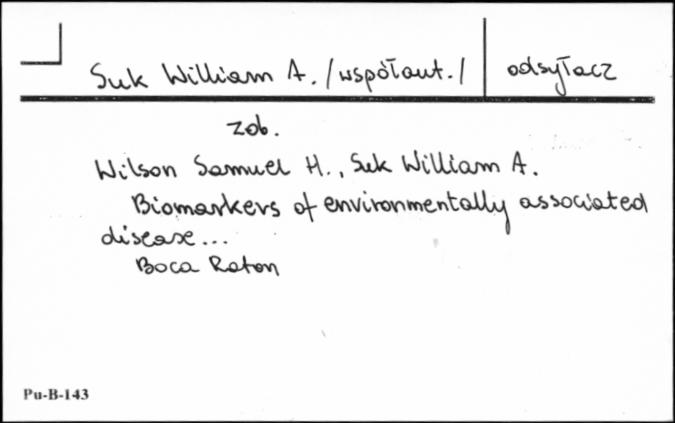 Suk William A. /współaut./ odsyłacz
zob.
Wilson Samuel H., Suk William A.
Biomarkers of environmentally associated
disease...
Boca Raton
Pu-B-143